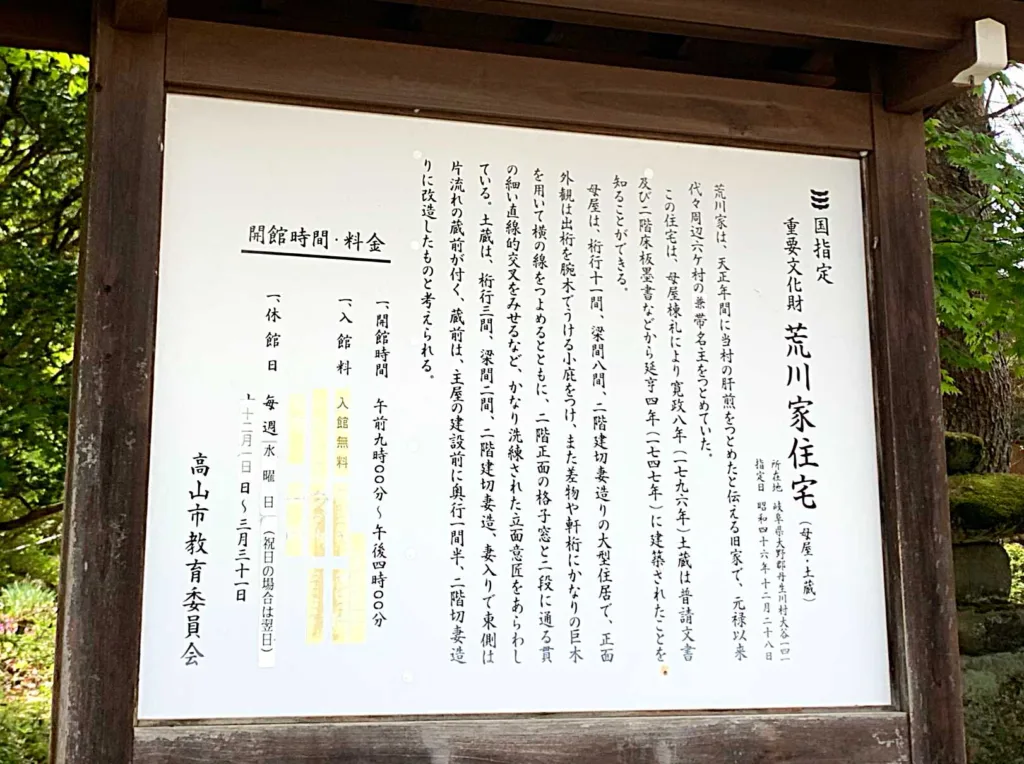 国指定
重要文化財 荒川家住宅(母屋・土蔵)
所在地 岐阜県大野郡丹生川村大谷一四一
指定日 昭和四十六年十二月二十八日
荒川家は、天正年間に当村の肝煎をつとめたと伝える旧家で、元禄以来
代々周辺六ケ村の兼帯名主をつとめていた。
この住宅は、母屋棟札により寛政八年(一七九六年)土蔵は普請文書
及び二階床板墨書などから延亨四年(一七四七年)に建築されたことを
知ることができる。
母屋は、桁行十一間、梁間八間、二階建切妻造りの大型住居で、正面
外観は出桁を腕木でうける小庇をつけ、また差物や軒桁にかなりの巨木
を用いて横の線をつよめるとともに、二階正面の格子窓と二段に通る貫
の細い直線的交叉をみせるなど、かなり洗練された立面意匠をあらわし
ている。土蔵は、桁行三間、梁間二間、二階建切妻造、妻入りで東側は
片流れの蔵前が付く、蔵前は、主屋の建設前に奥行一間半、二階切妻造
りに改造したものと考えられる。
開館時間・料金
一、開館時間 午前九時〇〇分～午後四時〇〇分
一、入館料 入館無料
一、休館日 毎週水曜日(祝日の場合は翌日)
十二月一日～三月三十一日
高山市教育委員会